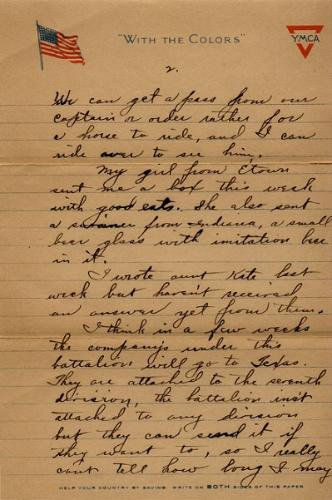 "WITH THE COLORS"
YMCA
2.
We can get a pass from our
captain or order rather for
a horse to ride, and I can
ride over to see him.
My girl from Etown
sent me a box this week
with good eats. She also sent
a from Indiana, a small
beer glass with imitation beer
in it.
I wrote aunt Kate last
week but haven't received
an answer yet from them.
I think in a few weeks
the companys under this
battalion will go to Texas.
They are attached to the seventh
division, the battalion isnt
attached to any division
but they can send it if
they want to, so I really
cant tell how long I may
HELP YOUR COUNTRY BY SAVING. WRITE ON BOTH SIDES OF THIS PAPER